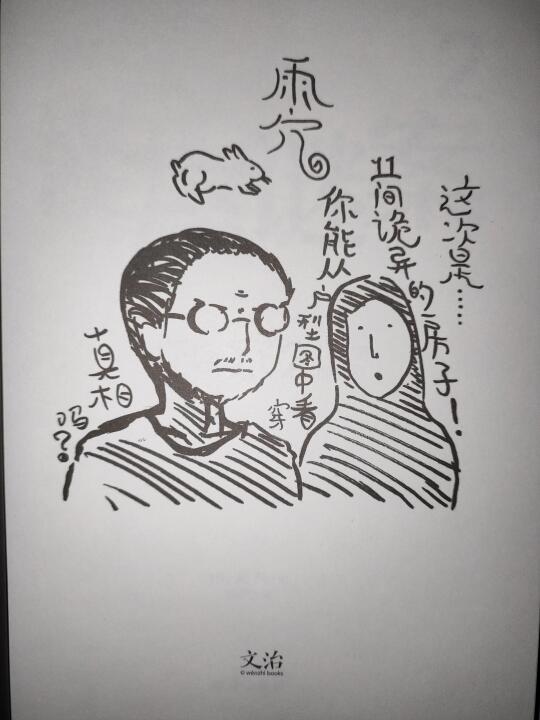 雨穴
这次是……
11间诡异的房子！
你能从户型图中看穿
真相吗？
文治
© wénzhì books